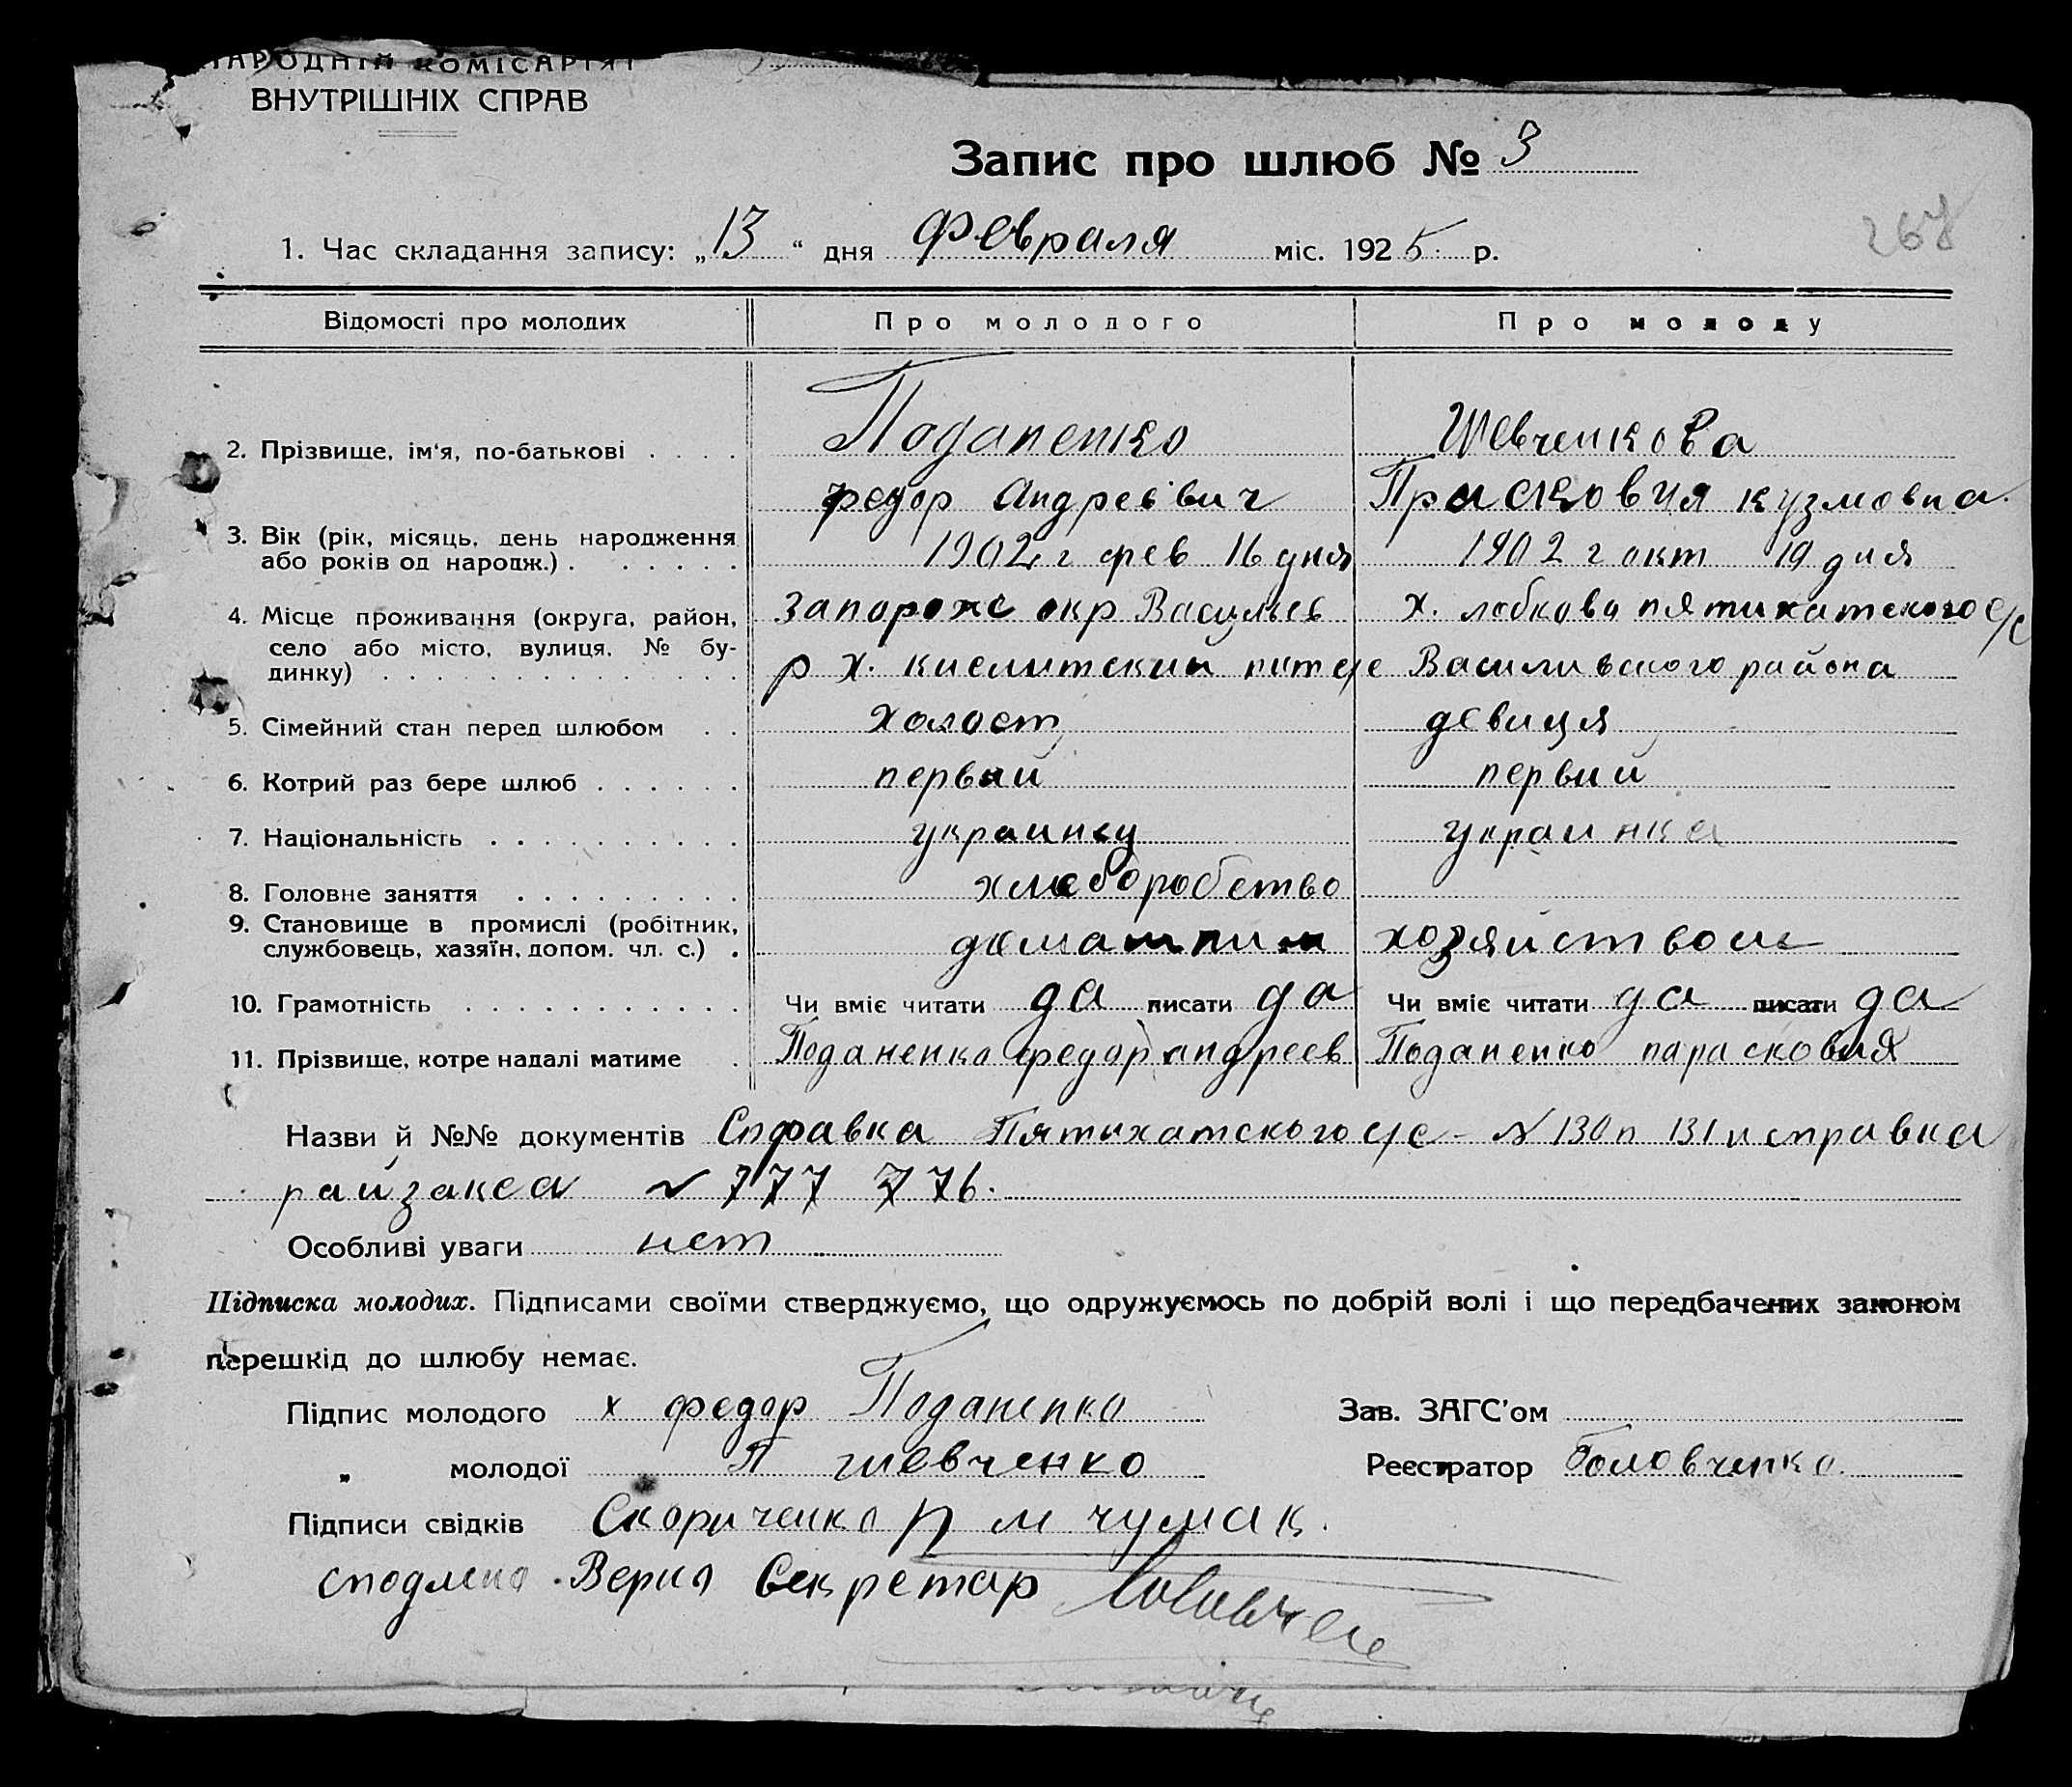 НАРОДНІЙ КОМІСАРІЯТ
ВНУТРІШНІХ СПРАВ
Запис про шлюб № 3
267
1. Час складання запису: „13“ дня Февраля міс. 1925 р.
Відомості про молодих Про молодого Про молоду
Поданенко Шевченкова
2. Прізвище, ім'я, по-батькові
федор Андреевич Прасковия кузмовна
3. Вік (рік, місяць, день народження
або років од народж.) 1902 г фев 16 дня 1902 г окт 19 дня
4. Місце проживання (округа, район, Запорожс окр Васильев х. лобкова пятихатского с/с
село або місто, вулиця, № бу-
динку) р х. Василивского района
5. Сімейний стан перед шлюбом холост девиця
6. Котрий раз бере шлюб первый первий
7. Національність украинец украинка
8. Головне заняття хлеборобство
9. Становище в промислі (робітник,
службовець, хазяїн, допом. чл. с.) хозяйством
10. Грамотність Чи вміє читати да писати да Чи вміє читати да писати да
11. Прізвище, котре надалі матиме Поданенко федор андреев Поданенко парасковия
Назви й №№ документів Справка Пятихатского с/с № 130 и 131 и справка
райзакса № 777 776.
Особливі уваги нет
Підписка молодих. Підписами своїми стверджуємо, що одружуємось по добрій волі і що передбачених законом
перешкід до шлюбу немає.
Підпис молодого х федор Поданенко Зав. ЗАГС'ом
„ молодої П шевченко Реєстратор Головченко
Підписи свідків Скориченко П м чумак.
Верно Секретар